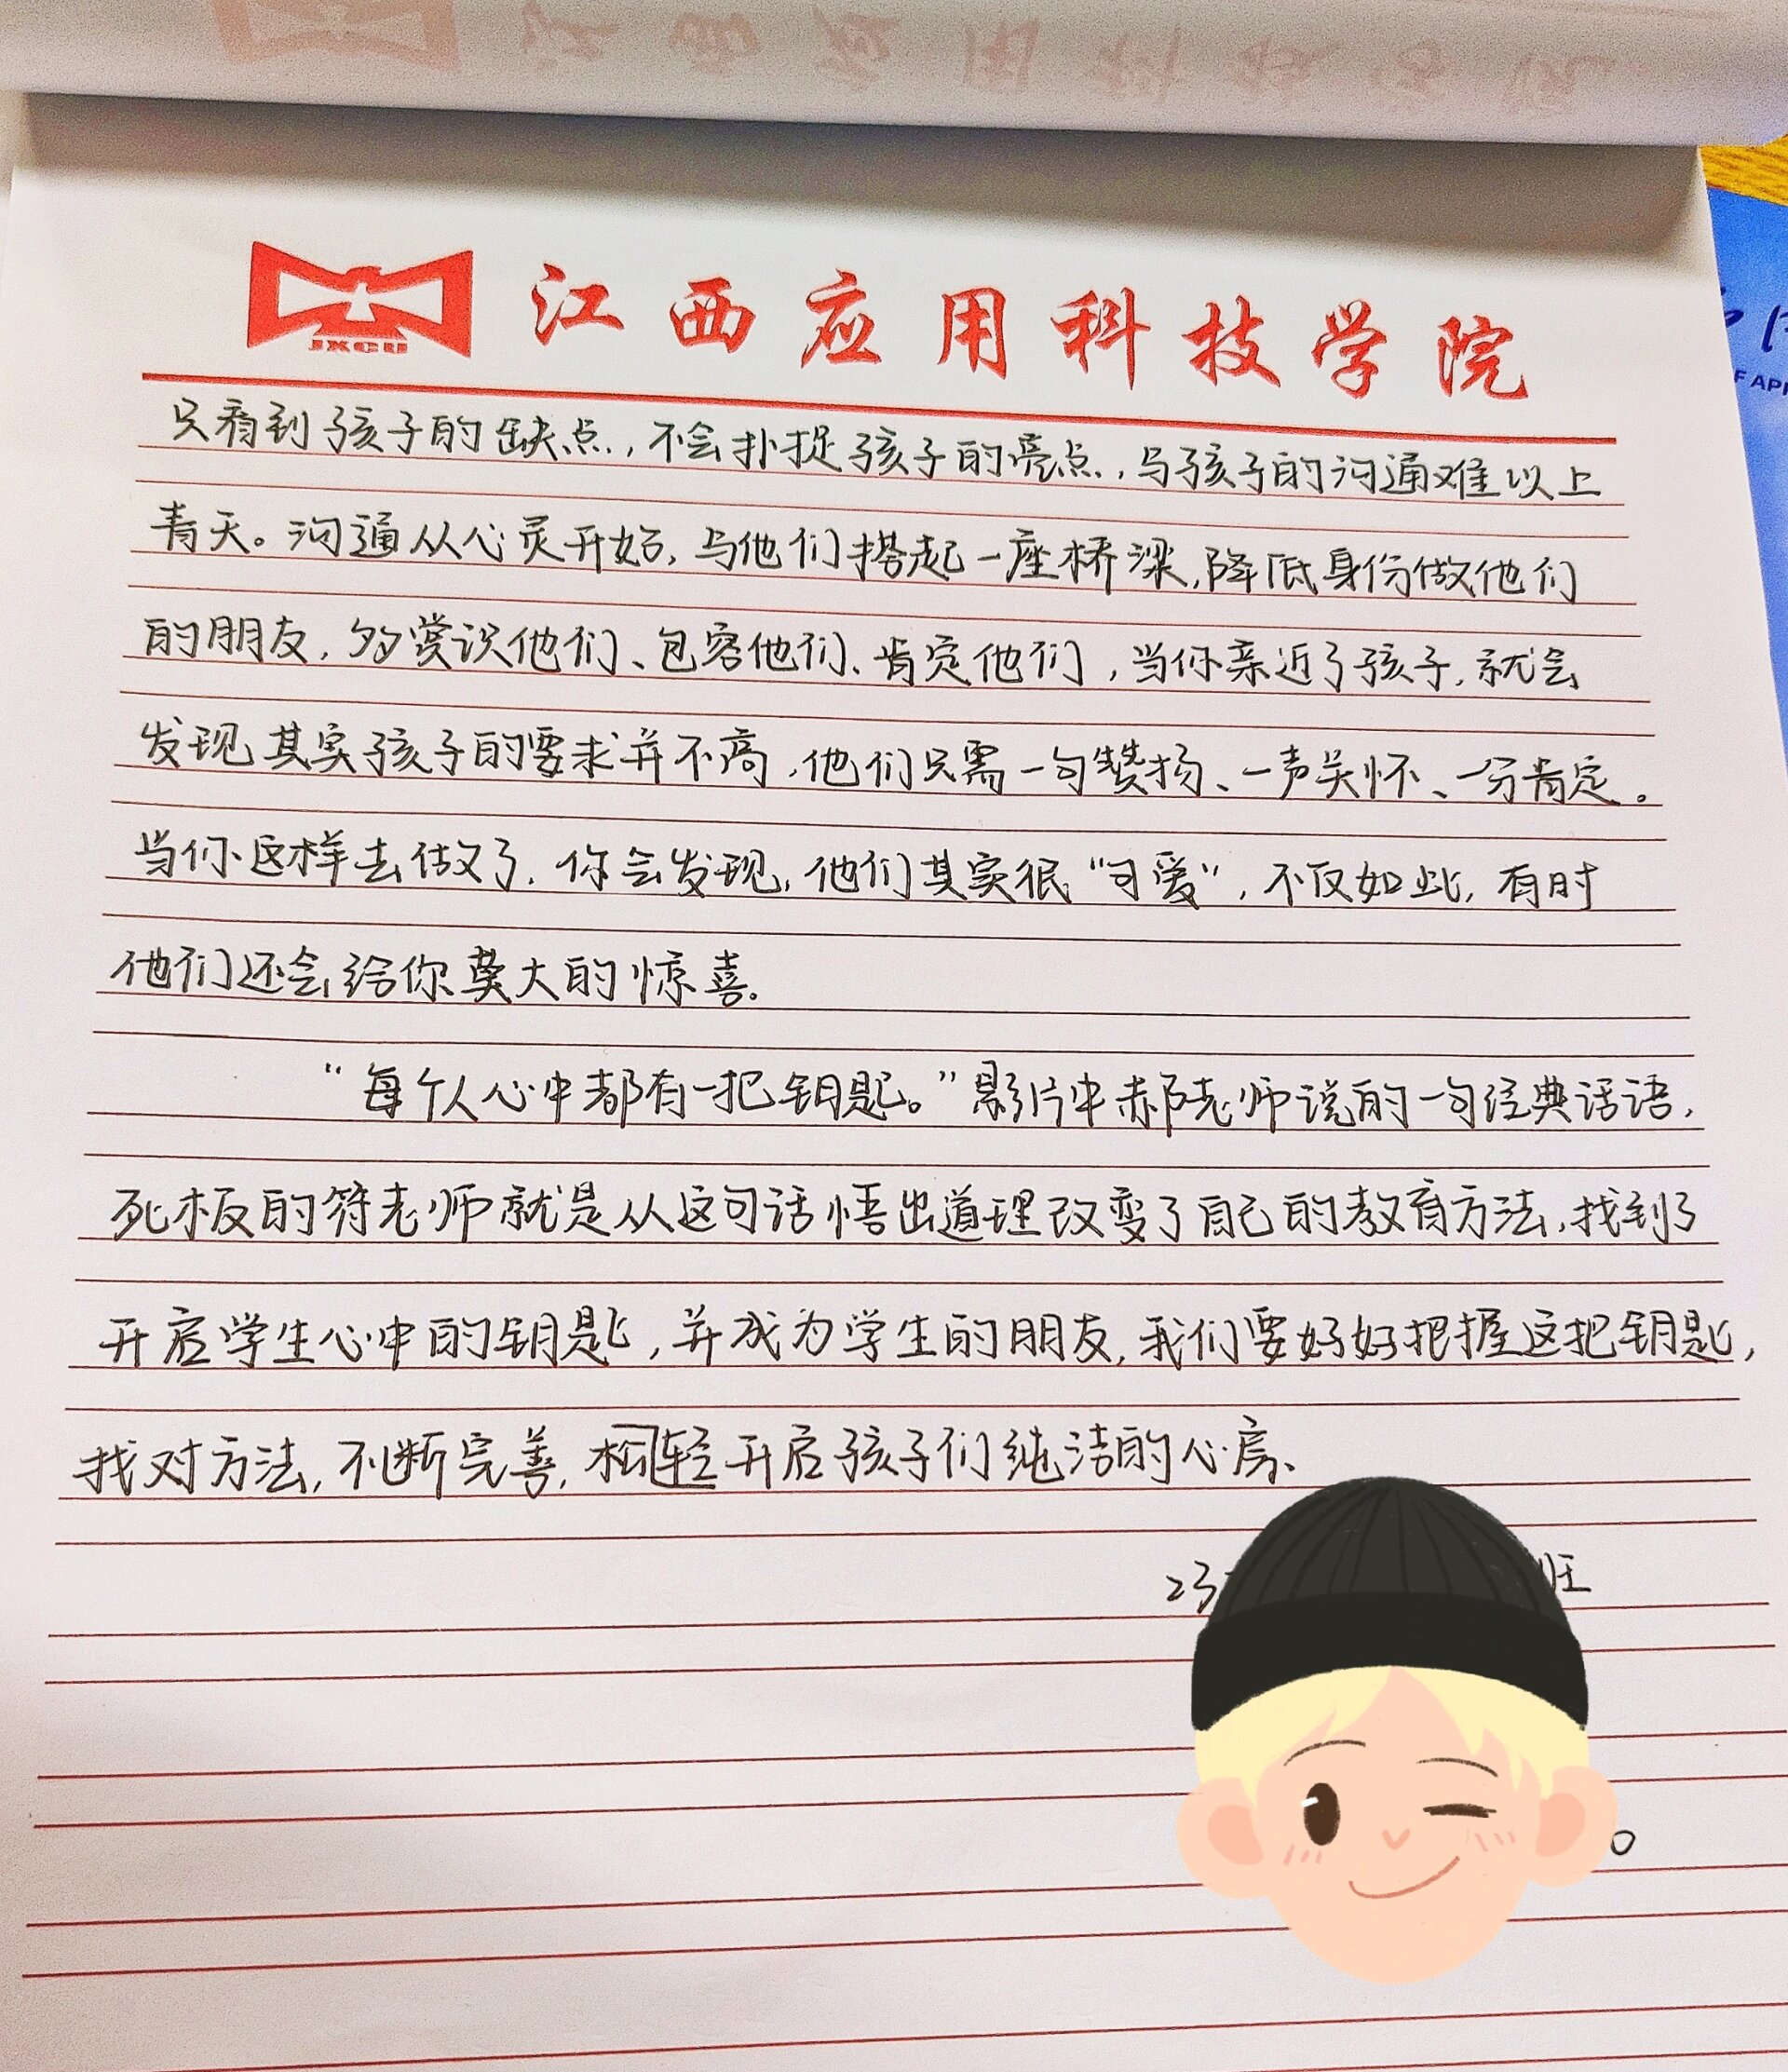 江西应用科技学院
JXCII
只看到孩子的缺点，不会扑捉孩子的亮点，与孩子的沟通难以上
青天。沟通从心灵开始，与他们搭起一座桥梁，降低身份做他们
的朋友，多赏识他们、包容他们、肯定他们，当你亲近了孩子，就会
发现其实孩子的要求并不高，他们只需一句赞扬、一声关怀、一分肯定。
当你这样去做了，你会发现，他们其实很“可爱”，不仅如此，有时
他们还会给你莫大的惊喜。
“每个人心中都有一把钥匙。”影片中郝老师说的一句经典话语，
死板的符老师就是从这句话悟出道理改变了自己的教育方法，找到了
开启学生心中的钥匙，并成为学生的朋友，我们要好好把握这把钥匙，
找对方法，不断完善，松轻开启孩子们纯洁的心房、
23
班
F API